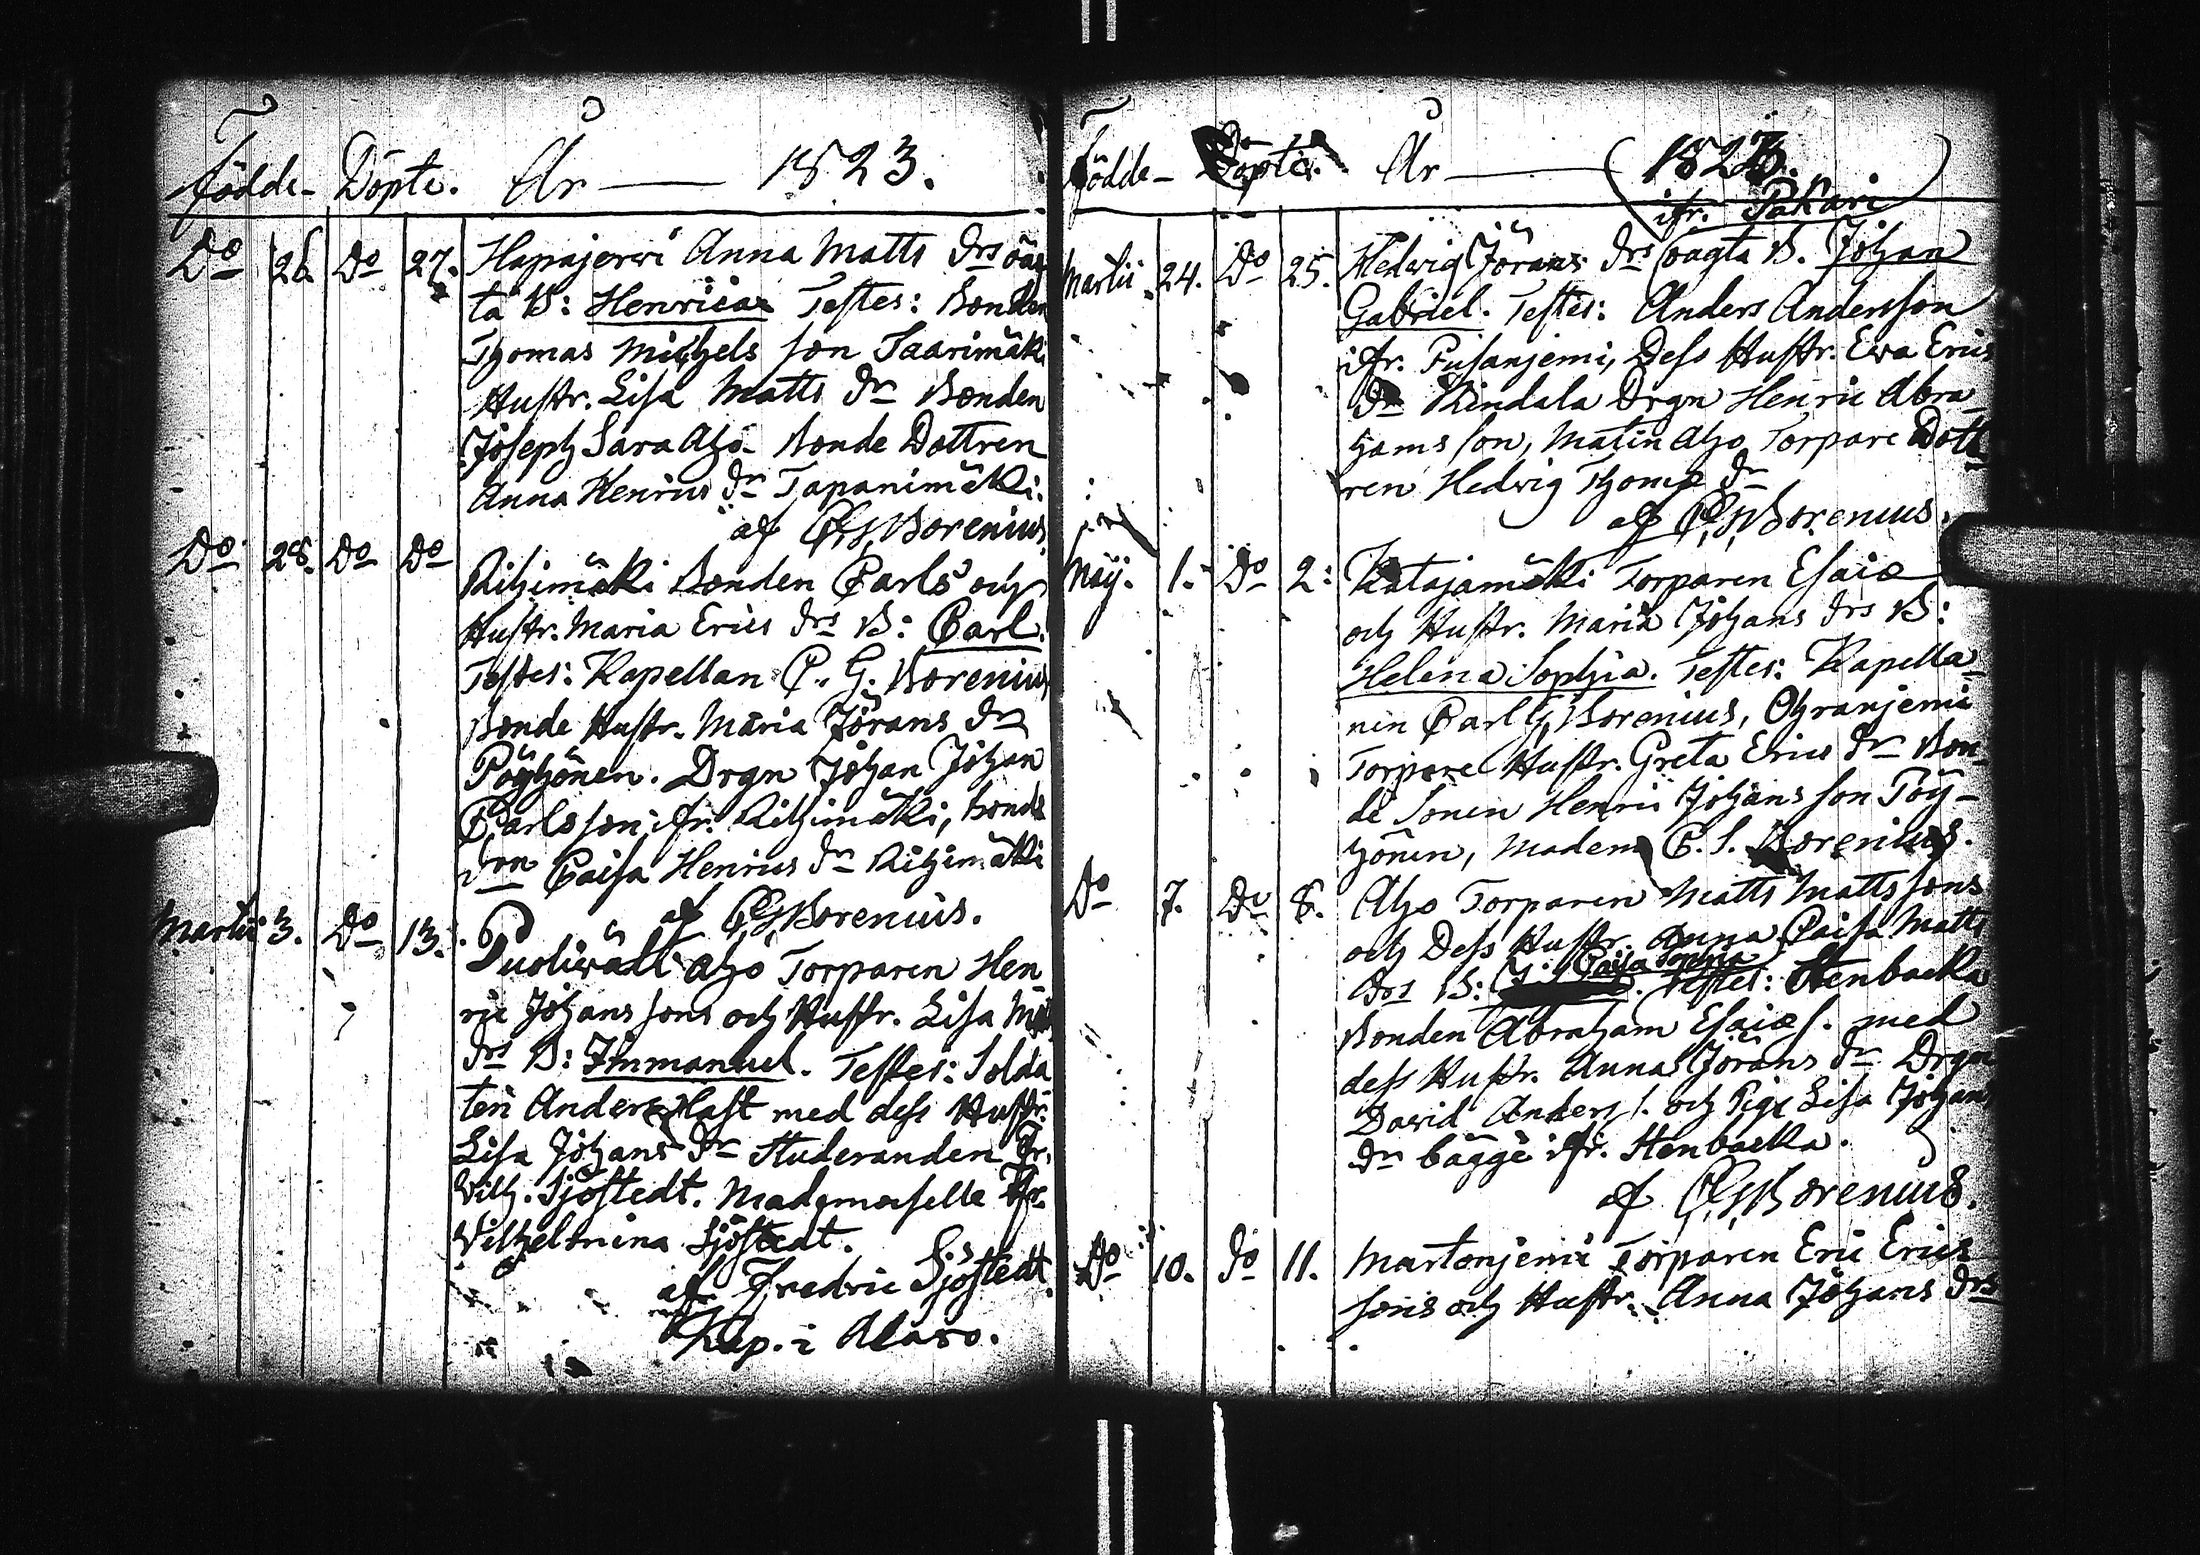 Födde - Döpte. År — 1823.
Do 26. Do 27. Hapajerwi Anna Matts drs oäg
ta B: Henrica Testes: Bonden
Thomas Michels son Saarimäki
Hustr. Lisa Matts dr Bonden
Joseph Sara Aho. Bonde Dottren
Anna Henrics dr Tapanimäki.
af C G Borenius.
Do 28. Do Do
Rihimäki Bonden Carls och
Hustr. Maria Erics drs B: Carl.
Testes: Kapellan C. G. Borenius
Bonde Hustr. Maria Jörans dr
Pöyhönen. Drgn Johan Johan
Carlsson ifr. Rihimäki, bonde
drn Caisa Henrics dr Rihimäki
af C G Borenius.
Martii 3. Do 13. Puoliwäli Aho Torparen Hen
ric Johans sons och Hustr. Lisa
drs B: Immanuel. Testes: Solda
ten Anders Hast med dess Hustr.
Lisa Johans dr Studeranden Fr.
Vilh. Sjöstedt. Mademoiselle Fr.
Vilhelmina Sjöstedt.
af Fredric Sjöstedt
Kap. i Alavo.
Födde - Döpte. År — 1823.
ifr. Pakari
Martii 24. Do 25. Hedwig Jörans drs oägta B. Johan
Gabriel. Testes: Anders Andersson
ifr. Pusanjemi, Dess Hustr. Ewa Erics
dr Rindala Drgn Henric Abra
hams son, Matin Aho Torpare Dott
ren Hedwig Thomæ dr
af C G Borenius.
Maij. 1. Do 2: Katajamäki Torparen Esaiæ
och Hustr. Maria Johans drs B:
Helena Sophia. Testes: Kapella
nen Carl G Borenius, Ohranjemi
Torpare Hustr. Greta Erics dr Bon
de Sonen Henric Johans son Pöy-
hönen, Madem C. S. Borenius.
Do 7. Do 8. Aho Torparen Matts Mattssons
och Dess Hustr. Anna Caisa Matts
Caisa Sophia
drs B: Testes: Stenbacka
Bonden Abraham Esaiæ s. med
dess Hustr. Anna Jörans dr Drgn
David Anders s. och Piga Lisa Johans
dr bägge ifr. Stenbacka.
af C G Borenius.
Do 10. do 11. Martonjemi Torparen Eric Erics
sons och Hustr. Anna Johans drs